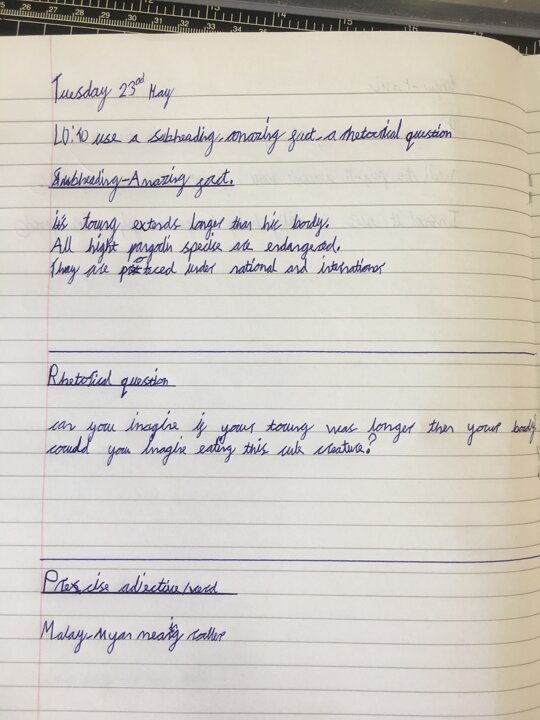 Tuesday 23rd May
LO: to use a subheading, amazing fact, a rhetorical question
Subheading-Amazing fact.
it's toung extends longer than hic body.
All hight pangolin specise are endangered.
They are protced under national and internationer
Rhetorical question
can you imagine if your toung was longer then your boady
could you imagine eating this cute creature?
Precise adjective/word
Malay-Myan meaing roller